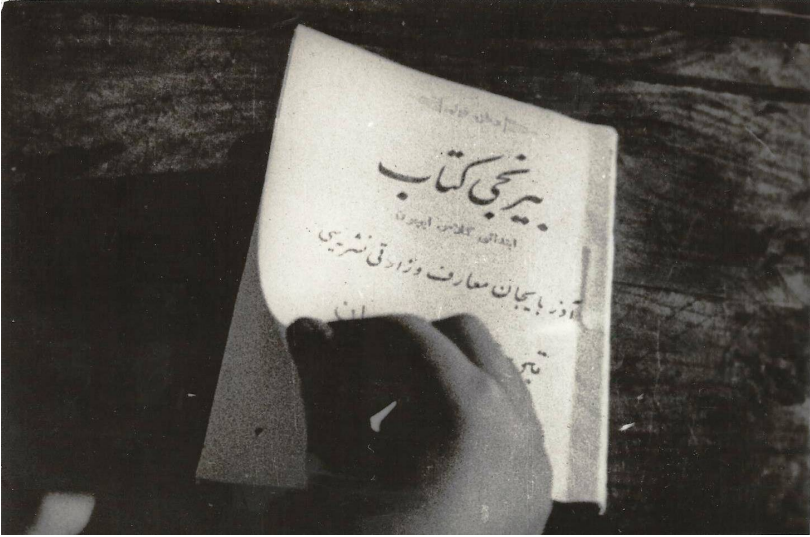 بیرنجی کتاب
ابتدائی کلاس ایچون
آذربایجان معارف وزارتی نشریسی